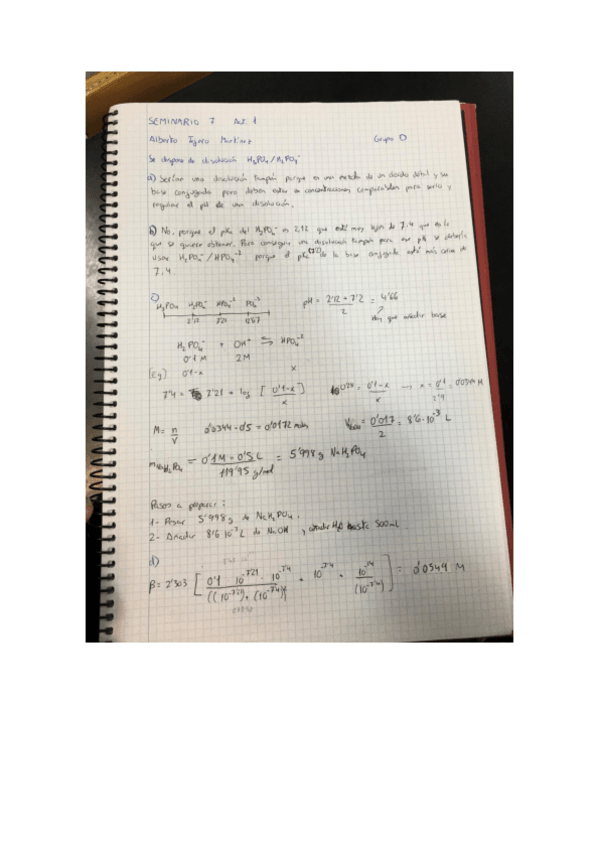 SEMINARIO 7 Act. 1
Alberto Martínez Grupo D
Se dispone de disolución H₃PO₄/H₂PO₄⁻
a) Serían una disolución tampón porque es una mezcla de un ácido débil y su
base conjugada pero deben estar en concentraciones comparables para servir y
regular el pH de una disolución.
b) No, porque el pKa del H₃PO₄ es 2,12 que está muy lejos de 7.4 que es lo
que se quiere obtener. Para conseguir una disolución tampón para ese pH se debería
usar H₂PO₄⁻/HPO₄⁻² porque el pKa de la base conjugada está más cerca de
7.4.
c)
H₃PO₄ H₂PO₄⁻ HPO₄⁻² PO₄⁻³
2'12 7'21 12'67
pH = 2'12 + 7'2 / 2 = 4'66
Hay que añadir base
H₂PO₄⁻ + OH⁻ ⇆ HPO₄⁻²
0'1 M 2M
[Eq] 0'1-x x
7'4 = 7'21 + log [ 0'1-x / x ]
0'1-x / x → x = 0'1 / 2'9 = 0'0344 M
M = n / V 0'0344 · 0'5 = 0'0172 moles
= 0'017 / 2 = 8'6·10⁻³ L
= 0'1M · 0'5 L / 119'95 g/mol = 5'998 g NaH₂PO₄
Pasos a preparar:
1- Pesar 5'998 g de NaH₂PO₄.
2- Añadir 8'6·10⁻³ L de NaOH y añadir H₂O hasta 500 mL
d)
β = 2'303 [ 0'1 10⁻⁷'²¹ · 10⁻⁷'⁴ / ((10⁻⁷'²¹) + (10⁻⁷'⁴)) + 10⁻⁷'⁴ + 10⁻¹⁴ / (10⁻⁷'⁴) ] = 0'0549 M